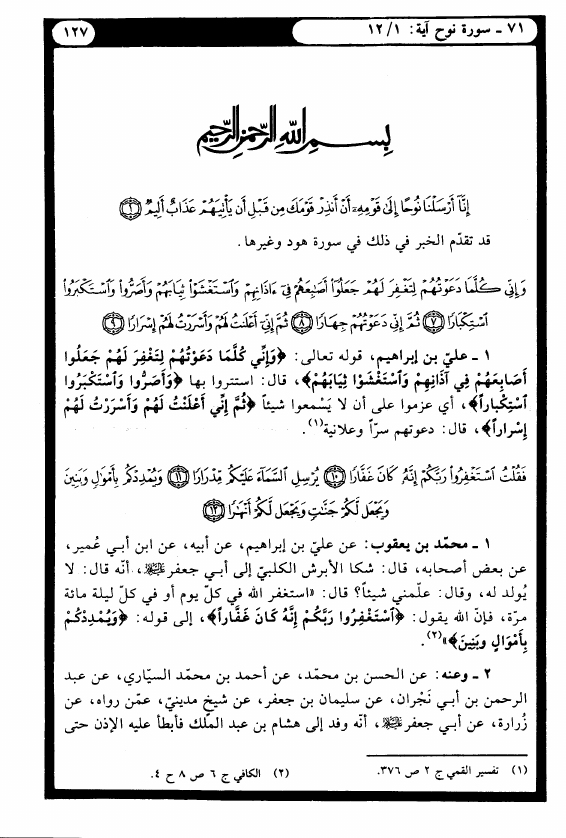 ٧١ ـ سورة نوح آية: ١/ ١٢
١٢٧
بِسْمِ اللَّهِ الرَّحْمَٰنِ الرَّحِيمِ
إِنَّآ أَرْسَلْنَا نُوحًا إِلَىٰ قَوْمِهِۦٓ أَنْ أَنذِرْ قَوْمَكَ مِن قَبْلِ أَن يَأْتِيَهُمْ عَذَابٌ أَلِيمٌ ﴿١﴾
قد تقدّم الخبر في ذلك في سورة هود وغيرها.
وَإِنِّي كُلَّمَا دَعَوْتُهُمْ لِتَغْفِرَ لَهُمْ جَعَلُوٓا۟ أَصَٰبِعَهُمْ فِىٓ ءَاذَانِهِمْ وَٱسْتَغْشَوْا۟ ثِيَابَهُمْ وَأَصَرُّوا۟ وَٱسْتَكْبَرُوا۟
ٱسْتِكْبَارًا ﴿٧﴾ ثُمَّ إِنِّى دَعَوْتُهُمْ جِهَارًا ﴿٨﴾ ثُمَّ إِنِّىٓ أَعْلَنتُ لَهُمْ وَأَسْرَرْتُ لَهُمْ إِسْرَارًا ﴿٩﴾
١ ـ عليّ بن إبراهيم، قوله تعالى: ﴿وَإِنِّي كُلَّمَا دَعَوْتُهُمْ لِتَغْفِرَ لَهُمْ جَعَلُوا
أَصَابِعَهُمْ فِي آذَانِهِمْ وَاسْتَغْشَوْا ثِيَابَهُمْ﴾، قال: استتروا بها ﴿وَأَصَرُّوا وَاسْتَكْبَرُوا
اسْتِكْباراً﴾، أي عزموا على أن لا يَسْمعوا شيئاً ﴿ثُمَّ إِنِّي أَعْلَنْتُ لَهُمْ وَأَسْرَرْتُ لَهُمْ
إِسْراراً﴾، قال: دعوتهم سرّاً وعلانية(١).
فَقُلْتُ ٱسْتَغْفِرُوا۟ رَبَّكُمْ إِنَّهُۥ كَانَ غَفَّارًا ﴿١٠﴾ يُرْسِلِ ٱلسَّمَآءَ عَلَيْكُم مِّدْرَارًا ﴿١١﴾ وَيُمْدِدْكُم بِأَمْوَٰلٍ وَبَنِينَ
وَيَجْعَل لَّكُمْ جَنَّٰتٍ وَيَجْعَل لَّكُمْ أَنْهَٰرًا ﴿١٢﴾
١ ـ محمّد بن يعقوب: عن عليّ بن إبراهيم، عن أبيه، عن ابن أبي عُمير،
عن بعض أصحابه، قال: شكا الأبرش الكلبيّ إلى أبي جعفر عليه السلام، أنّه قال: لا
يُولد له، وقال: علّمني شيئاً؟ قال: «استغفر الله في كلّ يوم أو في كلّ ليلة مائة
مرّة، فإنّ الله يقول: ﴿اسْتَغْفِرُوا رَبَّكُمْ إِنَّهُ كَانَ غَفَّاراً﴾، إلى قوله: ﴿وَيُمْدِدْكُمْ
بِأَمْوَالٍ وبَنِينَ﴾»(٢).
٢ ـ وعنه: عن الحسن بن محمّد، عن أحمد بن محمّد السيّاري، عن عبد
الرحمن بن أبي نَجْران، عن سليمان بن جعفر، عن شيخ مدينيّ، عمّن رواه، عن
زُرارة، عن أبي جعفر عليه السلام، أنّه وفد إلى هشام بن عبد الملك فأبطأ عليه الإذن حتى
(١) تفسير القمي ج ٢ ص ٣٧٦.
(٢) الكافي ج ٦ ص ٨ ح ٤.